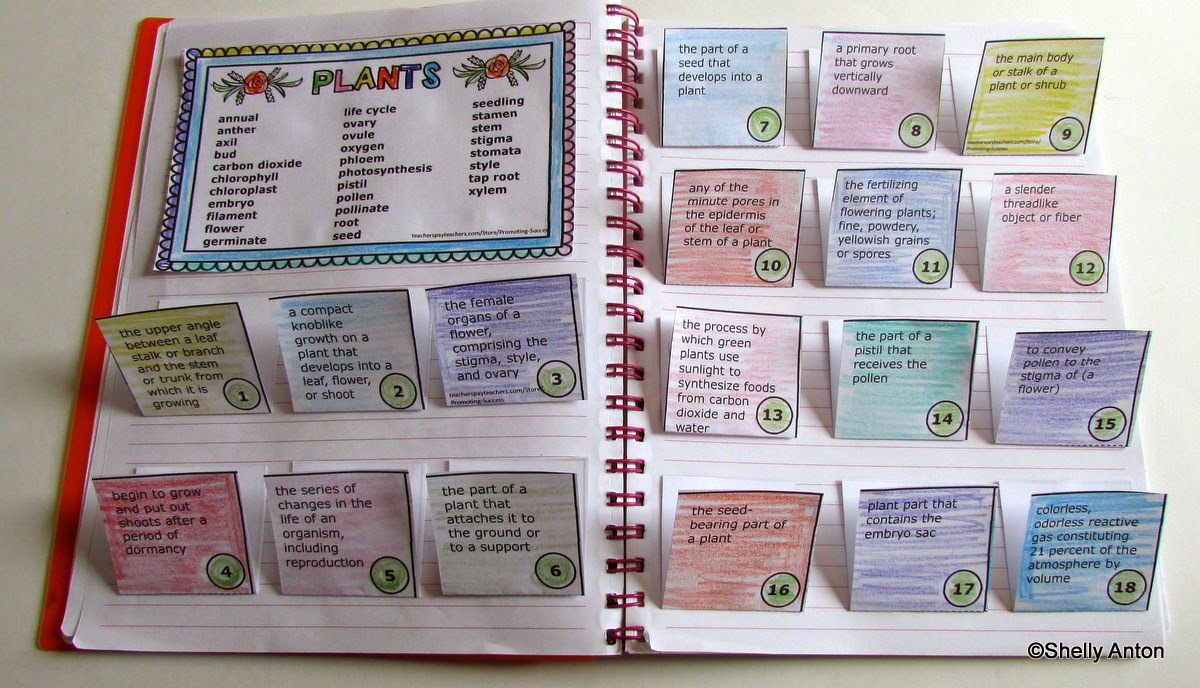 PLANTS
annual
anther
axil
bud
carbon dioxide
chlorophyll
chloroplast
embryo
filament
flower
germinate
life cycle
ovary
ovule
oxygen
phloem
photosynthesis
pistil
pollen
pollinate
root
seed
seedling
stamen
stem
stigma
stomata
style
tap root
xylem
teacherspayteachers.com/Store/Promoting-Success
the upper angle
between a leaf
stalk or branch
and the stem
or trunk from
which it is
growing
1
a compact
knoblike
growth on a
plant that
develops into a
leaf, flower,
or shoot
2
the female
organs of a
flower,
comprising the
stigma, style,
and ovary
teacherspayteachers.com/Store/
Promoting-Success
3
begin to grow
and put out
shoots after a
period of
dormancy
4
the series of
changes in the
life of an
organism,
including
reproduction
5
the part of a
plant that
attaches it to
the ground or
to a support
6
the part of a
seed that
develops into a
plant
7
a primary root
that grows
vertically
downward
8
the main body
or stalk of a
plant or shrub
teacherspayteachers.com/Store/
Promoting-Success
9
any of the
minute pores in
the epidermis
of the leaf or
stem of a plant
10
the fertilizing
element of
flowering plants;
fine, powdery,
yellowish grains
or spores
11
a slender
threadlike
object or fiber
12
the process by
which green
plants use
sunlight to
synthesize foods
from carbon
dioxide and
water
13
the part of a
pistil that
receives the
pollen
14
to convey
pollen to the
stigma of (a
flower)
15
the seed-
bearing part of
a plant
16
plant part that
contains the
embryo sac
17
colorless,
odorless reactive
gas constituting
21 percent of the
atmosphere by
volume
18
©Shelly Anton